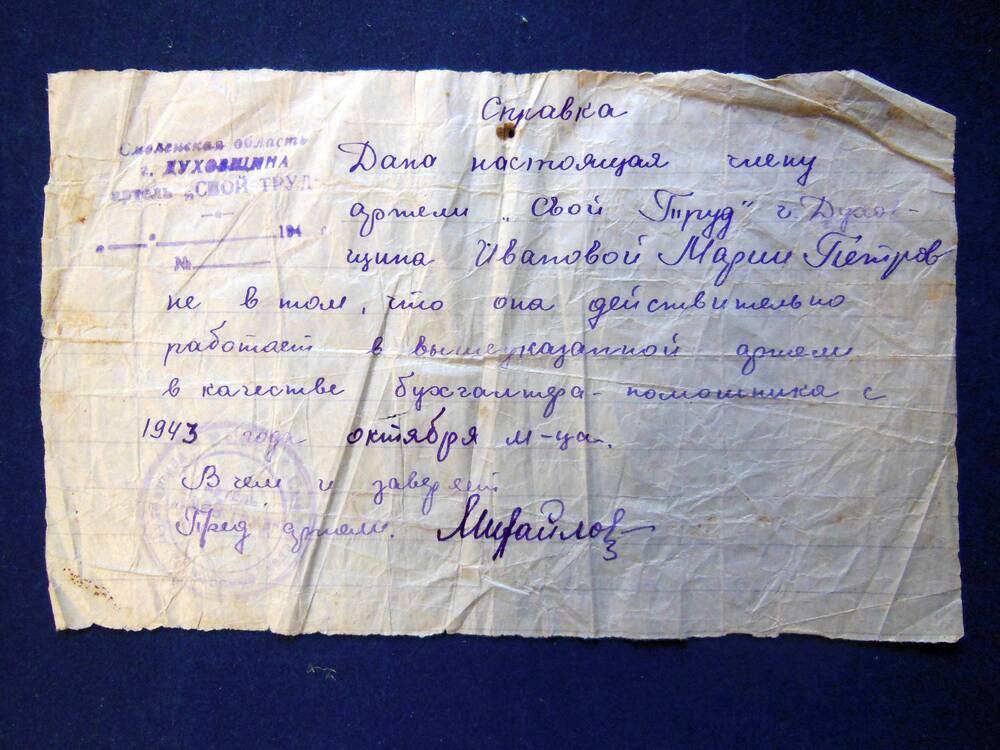 Справка
Смоленская область
г. ДУХОВЩИНА
артель „СВОЙ ТРУД"
194 г
№
Дана настоящая члену
артели „Свой Труд" г. Духов-
щина Ивановой Марии Петров
не в том, что она действительно
работает в вышеуказанной артели
в качестве бухгалтера-помошника с
1943 года октября м-ца.
В чем и заверяет
Пред артели. Михайлов